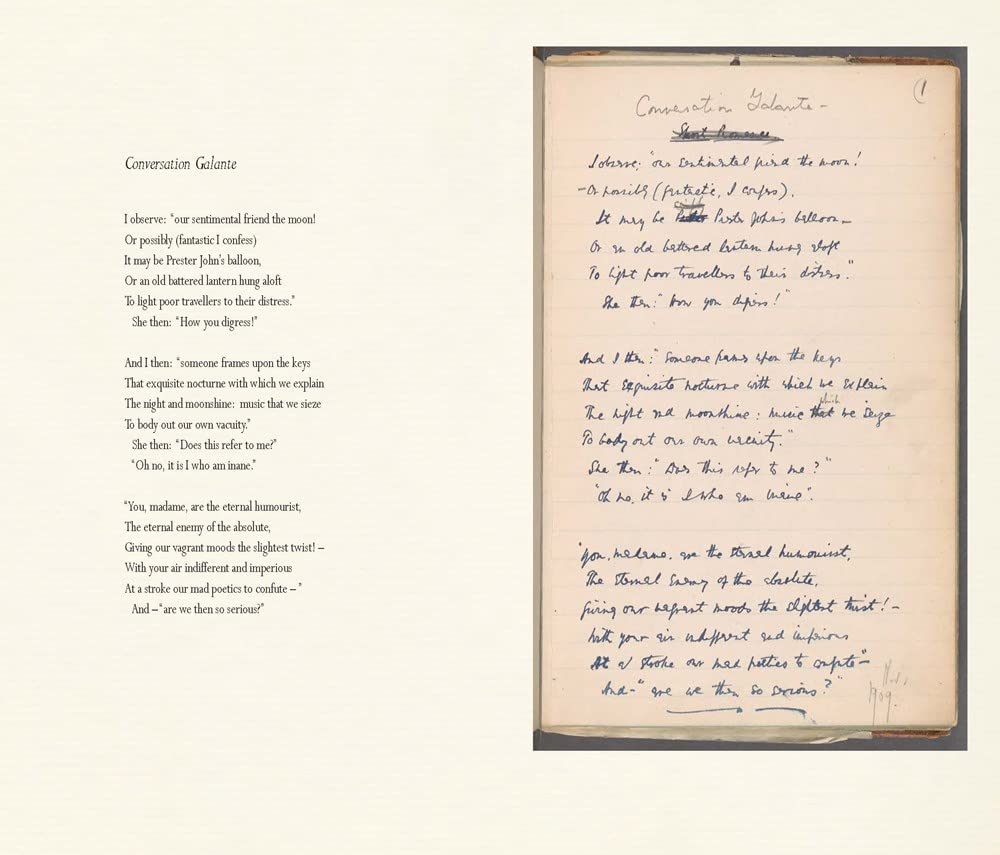 Conversation Galante
I observe: “our sentimental friend the moon!
Or possibly (fantastic I confess)
It may be Prester John’s balloon,
Or an old battered lantern hung aloft
To light poor travellers to their distress.”
She then: “How you digress!”
And I then: “someone frames upon the keys
That exquisite nocturne with which we explain
The night and moonshine: music that we sieze
To body out our own vacuity.”
She then: “Does this refer to me?”
“Oh no, it is I who am inane.”
“You, madame, are the eternal humourist,
The eternal enemy of the absolute,
Giving our vagrant moods the slightest twist! –
With your air indifferent and imperious
At a stroke our mad poetics to confute – ”
And –“are we then so serious?”
(1
Conversation Galante –
Short Romance
I observe: “our sentimental friend the moon!
– Or possibly (fantastic, I confess).
It may be Prester John’s balloon –
Or an old battered lantern hung aloft
To light poor travellers to their distress.”
She then: “How you digress!”
And I then: “Someone frames upon the keys
That exquisite nocturne with which we explain
which
The night and moonshine: music that we seize
To body out our own vacuity.”
She then: “Does this refer to me?”
“Oh no, it is I who am inane”.
“You, madame, are the eternal humourist,
The eternal enemy of the absolute,
Giving our vagrant moods the slightest twist! –
With your air indifferent and imperious
At a stroke our mad poetics to confute” –
And – “are we then so serious?”
Nov.
1909.